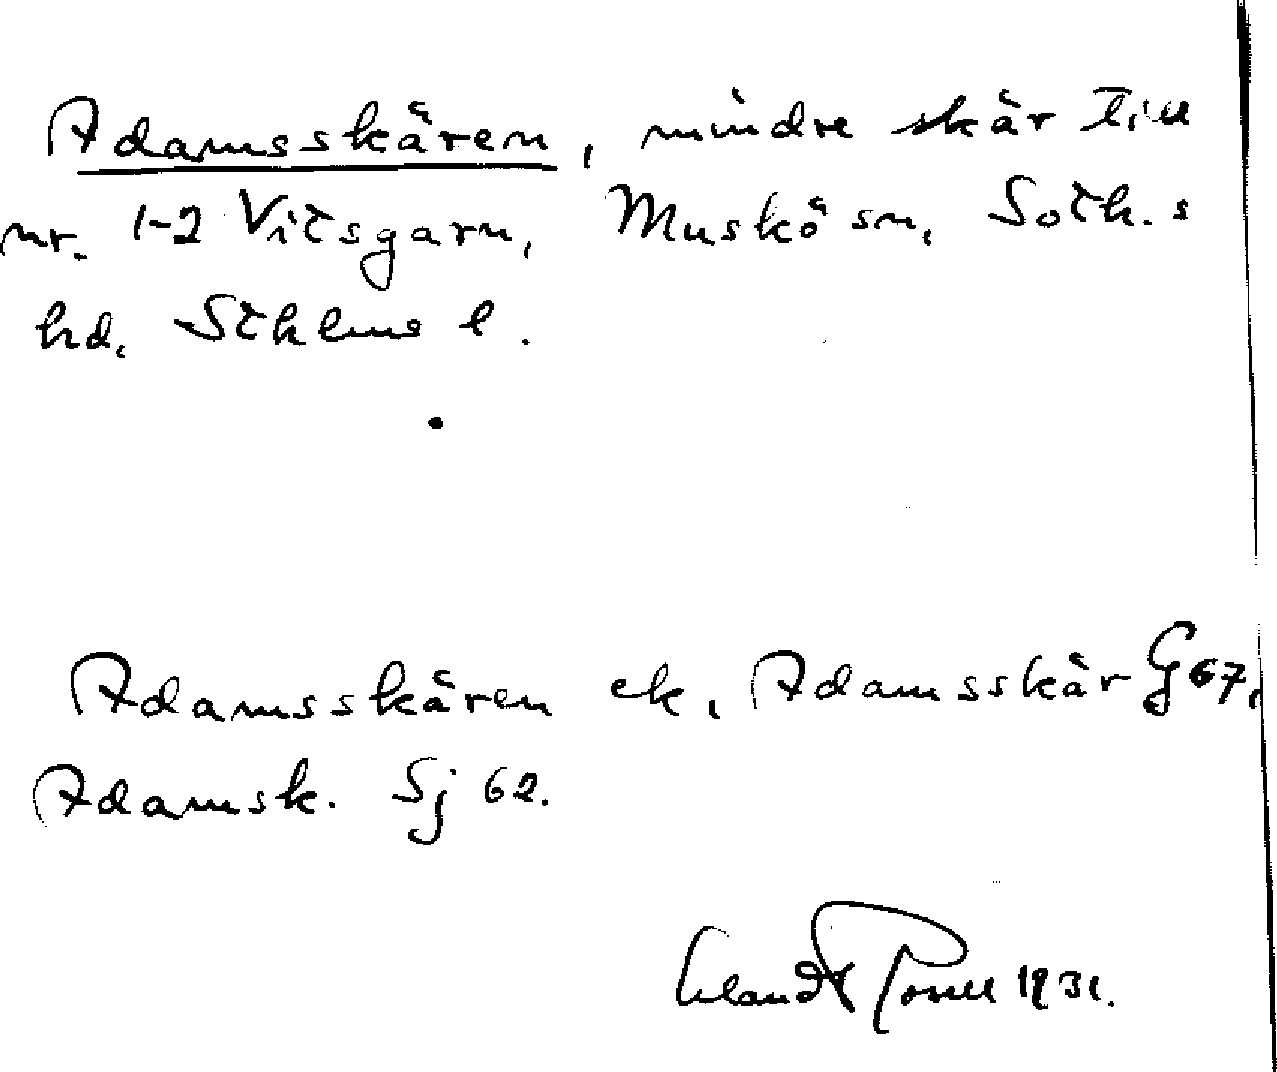 Adamsskären, mindre skär till
nr. 1-2 Vitsgarn, Muskö sn, Soth.s
hd. Sthlms l.
Adamsskären ek, Adamsskär G 67,
Adamsk. Sj 62.
1931.